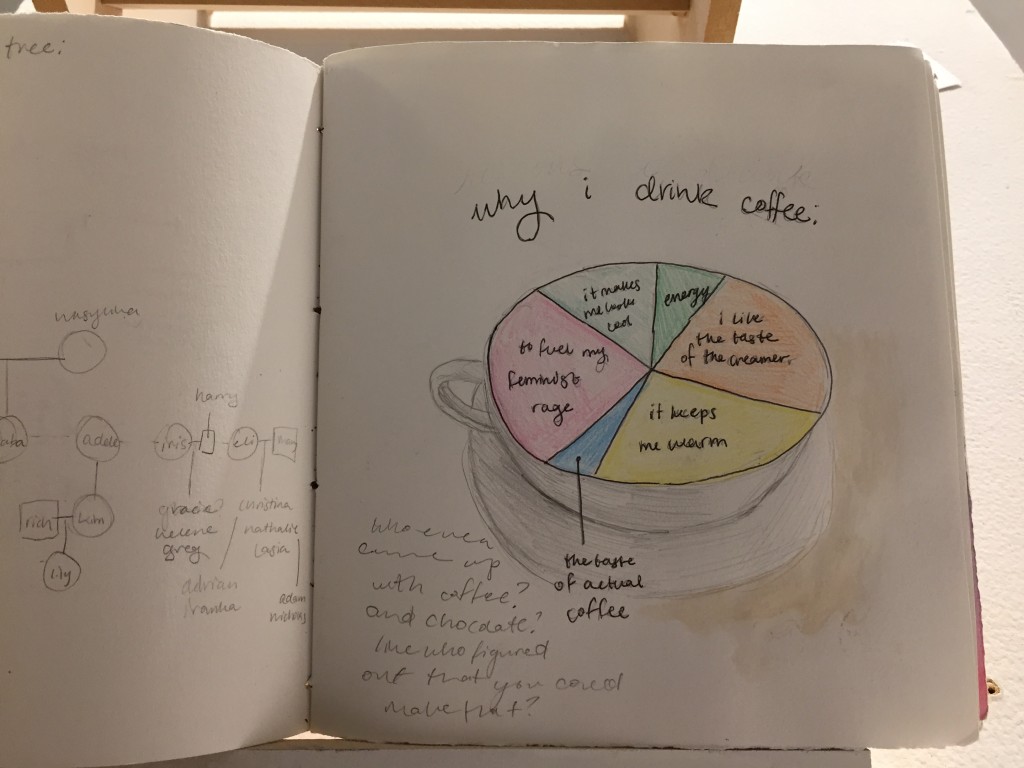 tree:
harry
iris
eli
adele
rich
lily
gracie?
helene
greg
christina
nathalie
adrian
adam
why i drink coffee:
it makes
me look
cool
energy
i like
the taste
of the creamer.
to fuel my
feminist
rage
it keeps
me warm
the taste
of actual
coffee
who even
came up
with coffee?
and chocolate?
like who figured
out that you could
make that?